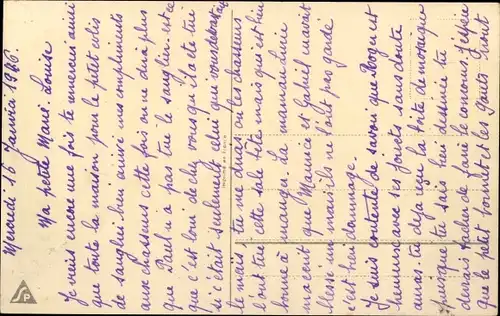 Mercredi 16 Janvier 1926.
Ma petite Marie-Louise
Je viens encore une fois te remercier ainsi
que toute la maison pour le petit colis
de sanglier bien arrivé mes compliments
aux chasseurs cette fois on ne dira plus
que Paul n'a pas tué le sanglier. est ce
que c'est loin de chez vous qu'il a été tué
si c'était seulement celui qui vous
le mais tu me diras ou les chasseurs
l'ont tué cette sale bête mais qui est bien
bonne à manger. La maman
que Maurice et Gabriel
blessé un mais ils ne l'ont pas gardé
c'est bien dommage.
Je suis contente de savoir que Roger est
heureux avec ses jouets sans doute
auras tu déjà reçu la boîte de mosaïque
puisque tu sais bien dessiner tu
devrais tacher de faire le concours. J'espère
que le petit bonnet et les gants